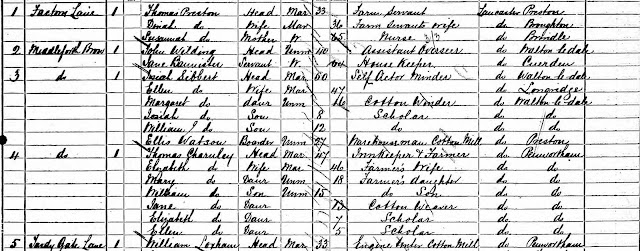 1 Factory Lane 1 Thomas Preston Head Mar 33 Farm Servant Lancaster Preston
Dinah do Wife Mar 36 Farm Servants Wife do Broughton
Susannah do Mother W. 65 Nurse 3/3 do Brindle
2 Middleforth Brow 1 John Welding do Unm 40 Assistant Overseer do Walton le dale
Jane Bannister Servant W. 64 House Keeper do Cuerden
3 do 1 Isaiah Sibbert Head Mar 50 Self Actor Minder do Walton le dale
Ellen do Wife Mar 47 do Longridge
Margaret do daur Unm 16 Cotton Winder do Walton le dale
Josiah do Son 8 Scholar do do
William J do Son 12 do do do
Ellis Watson Boarder Unm 27 Warehouseman Cotton Mill do Preston
4 do 1 Thomas Charnley Head Mar 47 Innkeeper & Farmer do Penwortham
Elizabeth do Wife Mar 46 Farmer's Wife do do
Mary do Daur Unm 18 Farmer's daughter do do
William do Son Unm 15 do Son do do
Jane do Daur 13 Cotton Weaver do do
Elizabeth do Daur 7 Scholar do do
Ellen do Daur 5 Scholar do do
5 Lane 1 William Loxham Head Mar 33 Engine Cotton Mill do Penwortham